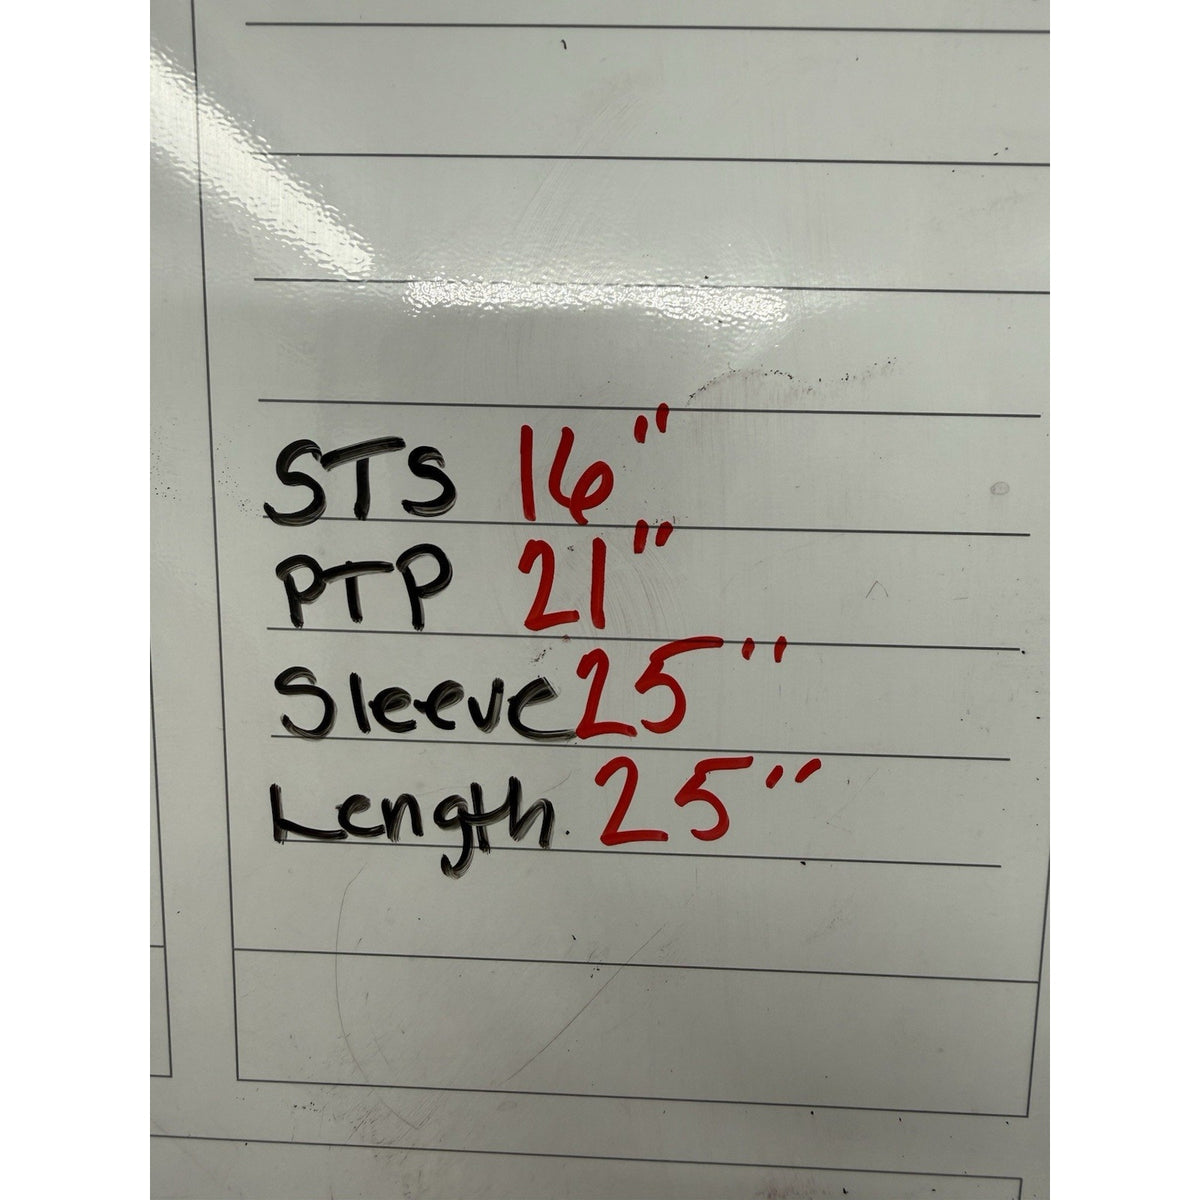 STS 16"
PTP 21"
Sleeve 25"
Length 25"